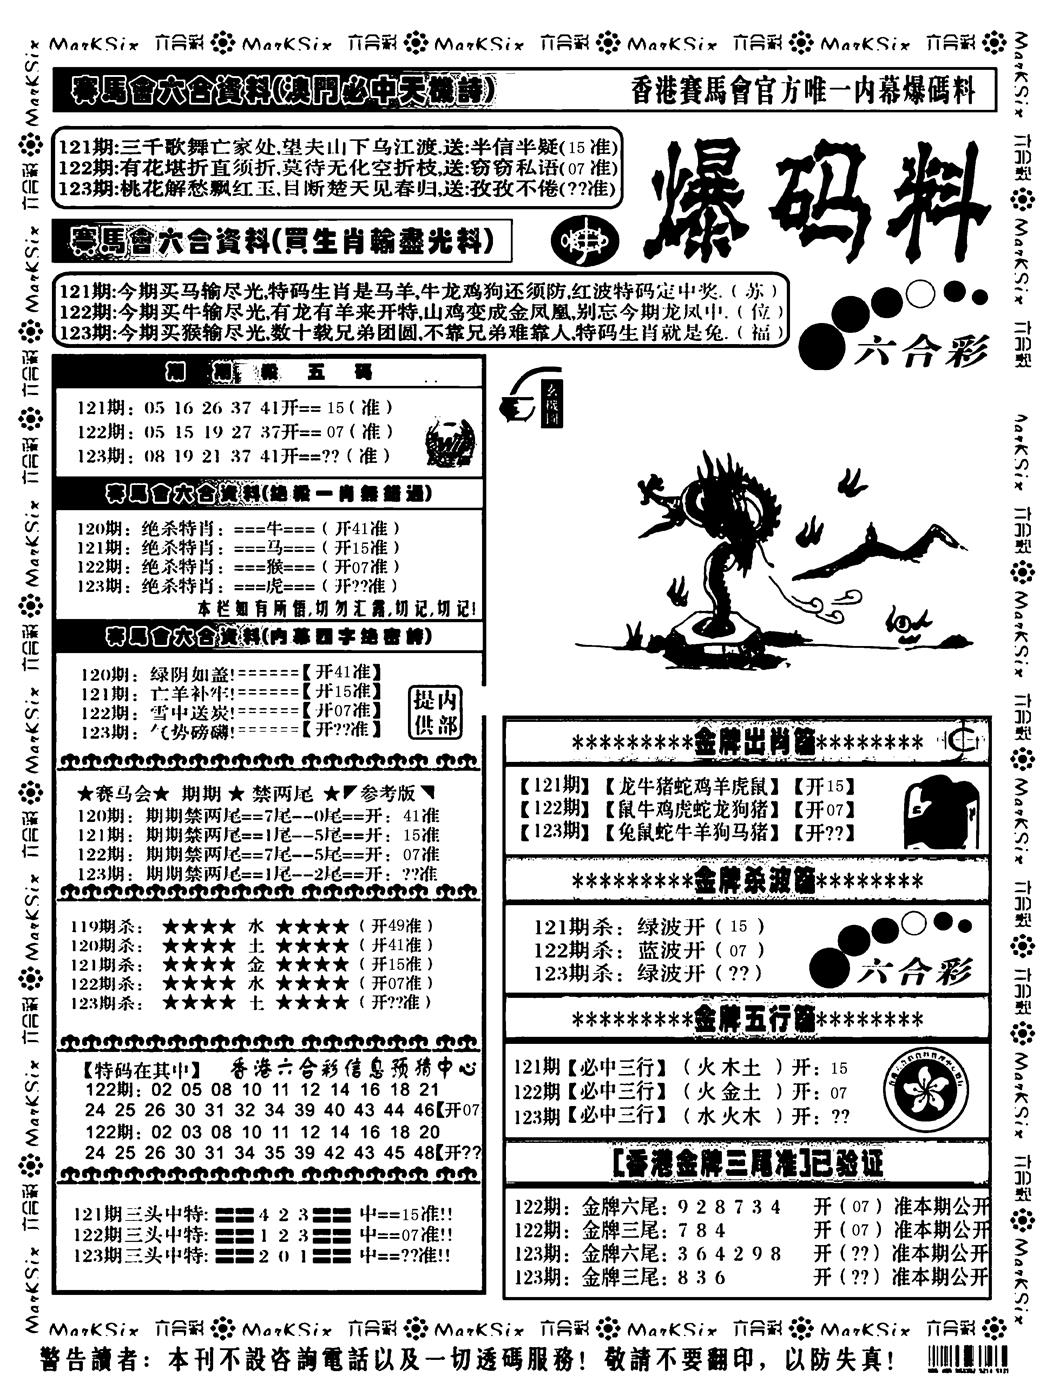 MarKSix 六合彩 MarKSix 六合彩 MarKSix 六合彩 MarKSix 六合彩 MarKSix 六合彩
賽馬會六合資料(澳門必中天機詩)
香港賽馬會官方唯一内幕爆碼料
121期:三千歌舞亡家处,望夫山下乌江渡,送:半信半疑(15准)
122期:有花堪折直须折,莫待无化空折枝,送:窃窃私语(07准)
123期:桃花解愁飘红玉,目断楚天见春归,送:孜孜不倦(??准)
爆码料
賽馬會六合資料(買生肖輸盡光料)
121期:今期买马输尽光,特码生肖是马羊,牛龙鸡狗还须防,红波特码定中奖.(苏)
122期:今期买牛输尽光,有龙有羊来开特,山鸡变成金凤凰,别忘今期龙凤中.(位)
123期:今期买猴输尽光,数十载兄弟团圆,不靠兄弟难靠人,特码生肖就是兔.(福)
六合彩
期期殺五碼
121期: 05 16 26 37 41开== 15(准)
122期: 05 15 19 27 37开== 07(准)
123期: 08 19 21 37 41开==??(准)
玄機圖
賽馬會六合資料(绝殺一肖無錯過)
120期: 绝杀特肖: ===牛===(开41准)
121期: 绝杀特肖: ===马===(开15准)
122期: 绝杀特肖: ===猴===(开07准)
123期: 绝杀特肖: ===虎===(开??准)
本栏如有所悟,切勿汇露,切记,切记!
賽馬會六合資料(内幕四字绝密詩)
120期: 绿阴如盖!======【开41准】
121期: 亡羊补牢!======【开15准】
122期: 雪中送炭!======【开07准】
123期: 气势磅礴!======【开??准】
内部提供
★赛马会★ 期期 ★ 禁两尾 ★◤参考版◥
120期: 期期禁两尾==7尾--0尾==开: 41准
121期: 期期禁两尾==1尾--5尾==开: 15准
122期: 期期禁两尾==7尾--5尾==开: 07准
123期: 期期禁两尾==1尾--2尾==开: ??准
119期杀: ★★★★ 水 ★★★★(开49准)
120期杀: ★★★★ 土 ★★★★(开41准)
121期杀: ★★★★ 金 ★★★★(开15准)
122期杀: ★★★★ 水 ★★★★(开07准)
123期杀: ★★★★ 土 ★★★★(开??准)
【特码在其中】 香港六合彩信息预猜中心
122期: 02 05 08 10 11 12 14 16 18 21
24 25 26 30 31 32 34 39 40 43 44 46【开07
122期: 02 03 08 10 11 12 14 16 18 20
24 25 26 30 31 34 35 39 42 43 45 48【开??
121期三头中特: 〓〓4 2 3〓〓 中==15准!!
122期三头中特: 〓〓1 2 3〓〓 中==07准!!
123期三头中特: 〓〓2 0 1〓〓 中==??准!!
*********金牌出肖篇********
【121期】【龙牛猪蛇鸡羊虎鼠】【开15】
【122期】【鼠牛鸡虎蛇龙狗猪】【开07】
【123期】【兔鼠蛇牛羊狗马猪】【开??】
*********金牌杀波篇********
121期杀: 绿波开(15)
122期杀: 蓝波开(07)
123期杀: 绿波开(??)
六合彩
*********金牌五行篇********
121期【必中三行】(火木土)开: 15
122期【必中三行】(火金土)开: 07
123期【必中三行】(水火木)开: ??
[香港金牌三尾准]已验证
122期: 金牌六尾: 9 2 8 7 3 4 开(07)准本期公开
122期: 金牌三尾: 7 8 4 开(07)准本期公开
123期: 金牌六尾: 3 6 4 2 9 8 开(??)准本期公开
123期: 金牌三尾: 8 3 6 开(??)准本期公开
MarKSix 六合彩 MarKSix 六合彩 MarKSix 六合彩 MarKSix 六合彩 MarKSix 六合彩
警告讀者: 本刊不設咨詢電話以及一切透碼服務! 敬請不要翻印, 以防失真!